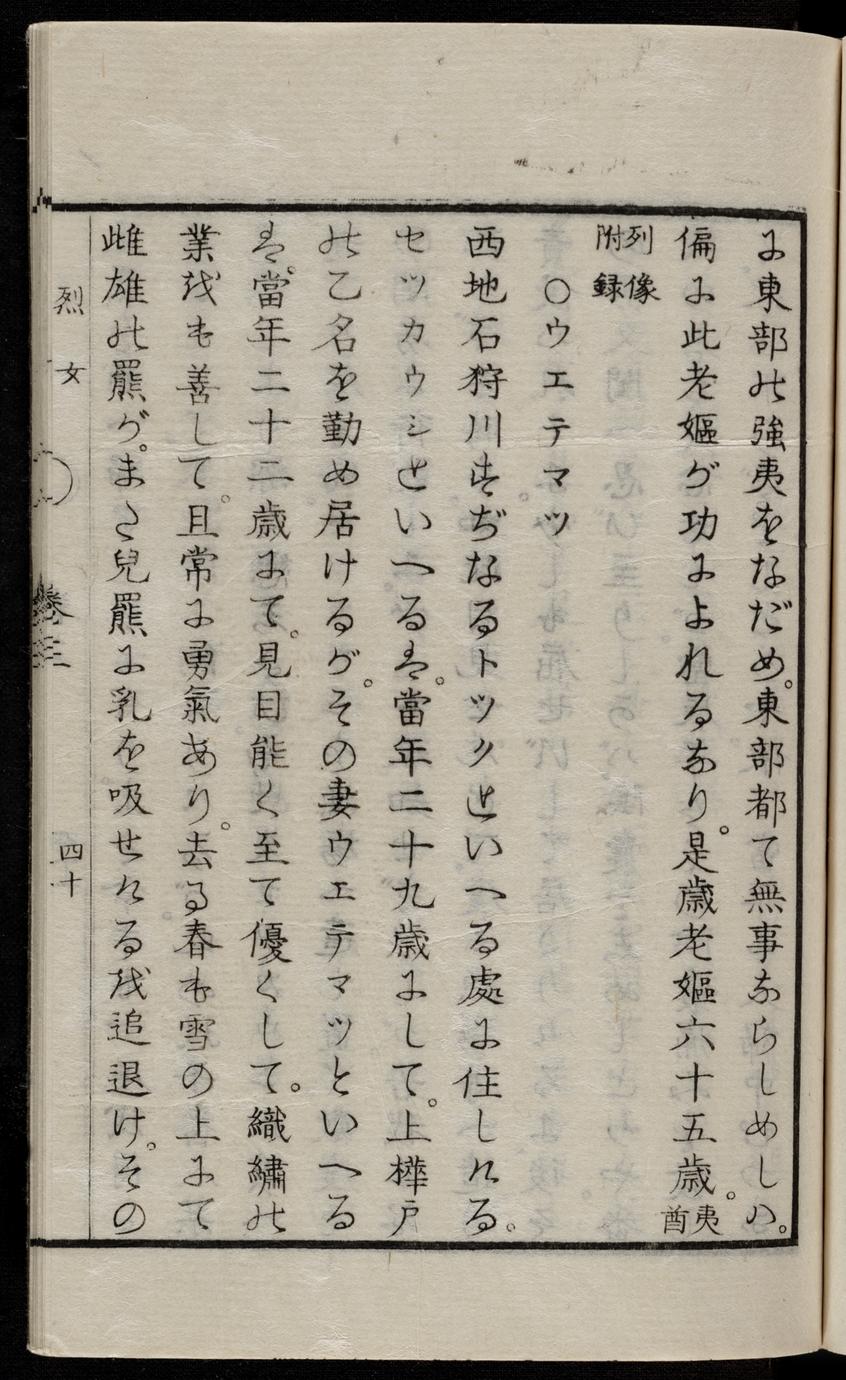 に東部の強夷をなだめ。東部都て無事ならしめしハ。
偏に此老嫗が功によれるなり。是歳老嫗六十五歳。夷酋
列像
附録
○ウエテマツ
西地石狩川すぢなるトツクといへる處に住しける。
セツカウシといへるは。當年二十九歳にして。上樺戸
の乙名を勤め居けるが。その妻ウエテマツといへる
は。當年二十二歳にて。見目能く至て優くして。織繡の
業をも善して。且常に勇氣あり。去る春も雪の上にて
雌雄の羆が。また兒羆に乳を吸せけるを追退け。その
烈女
卷三
四十